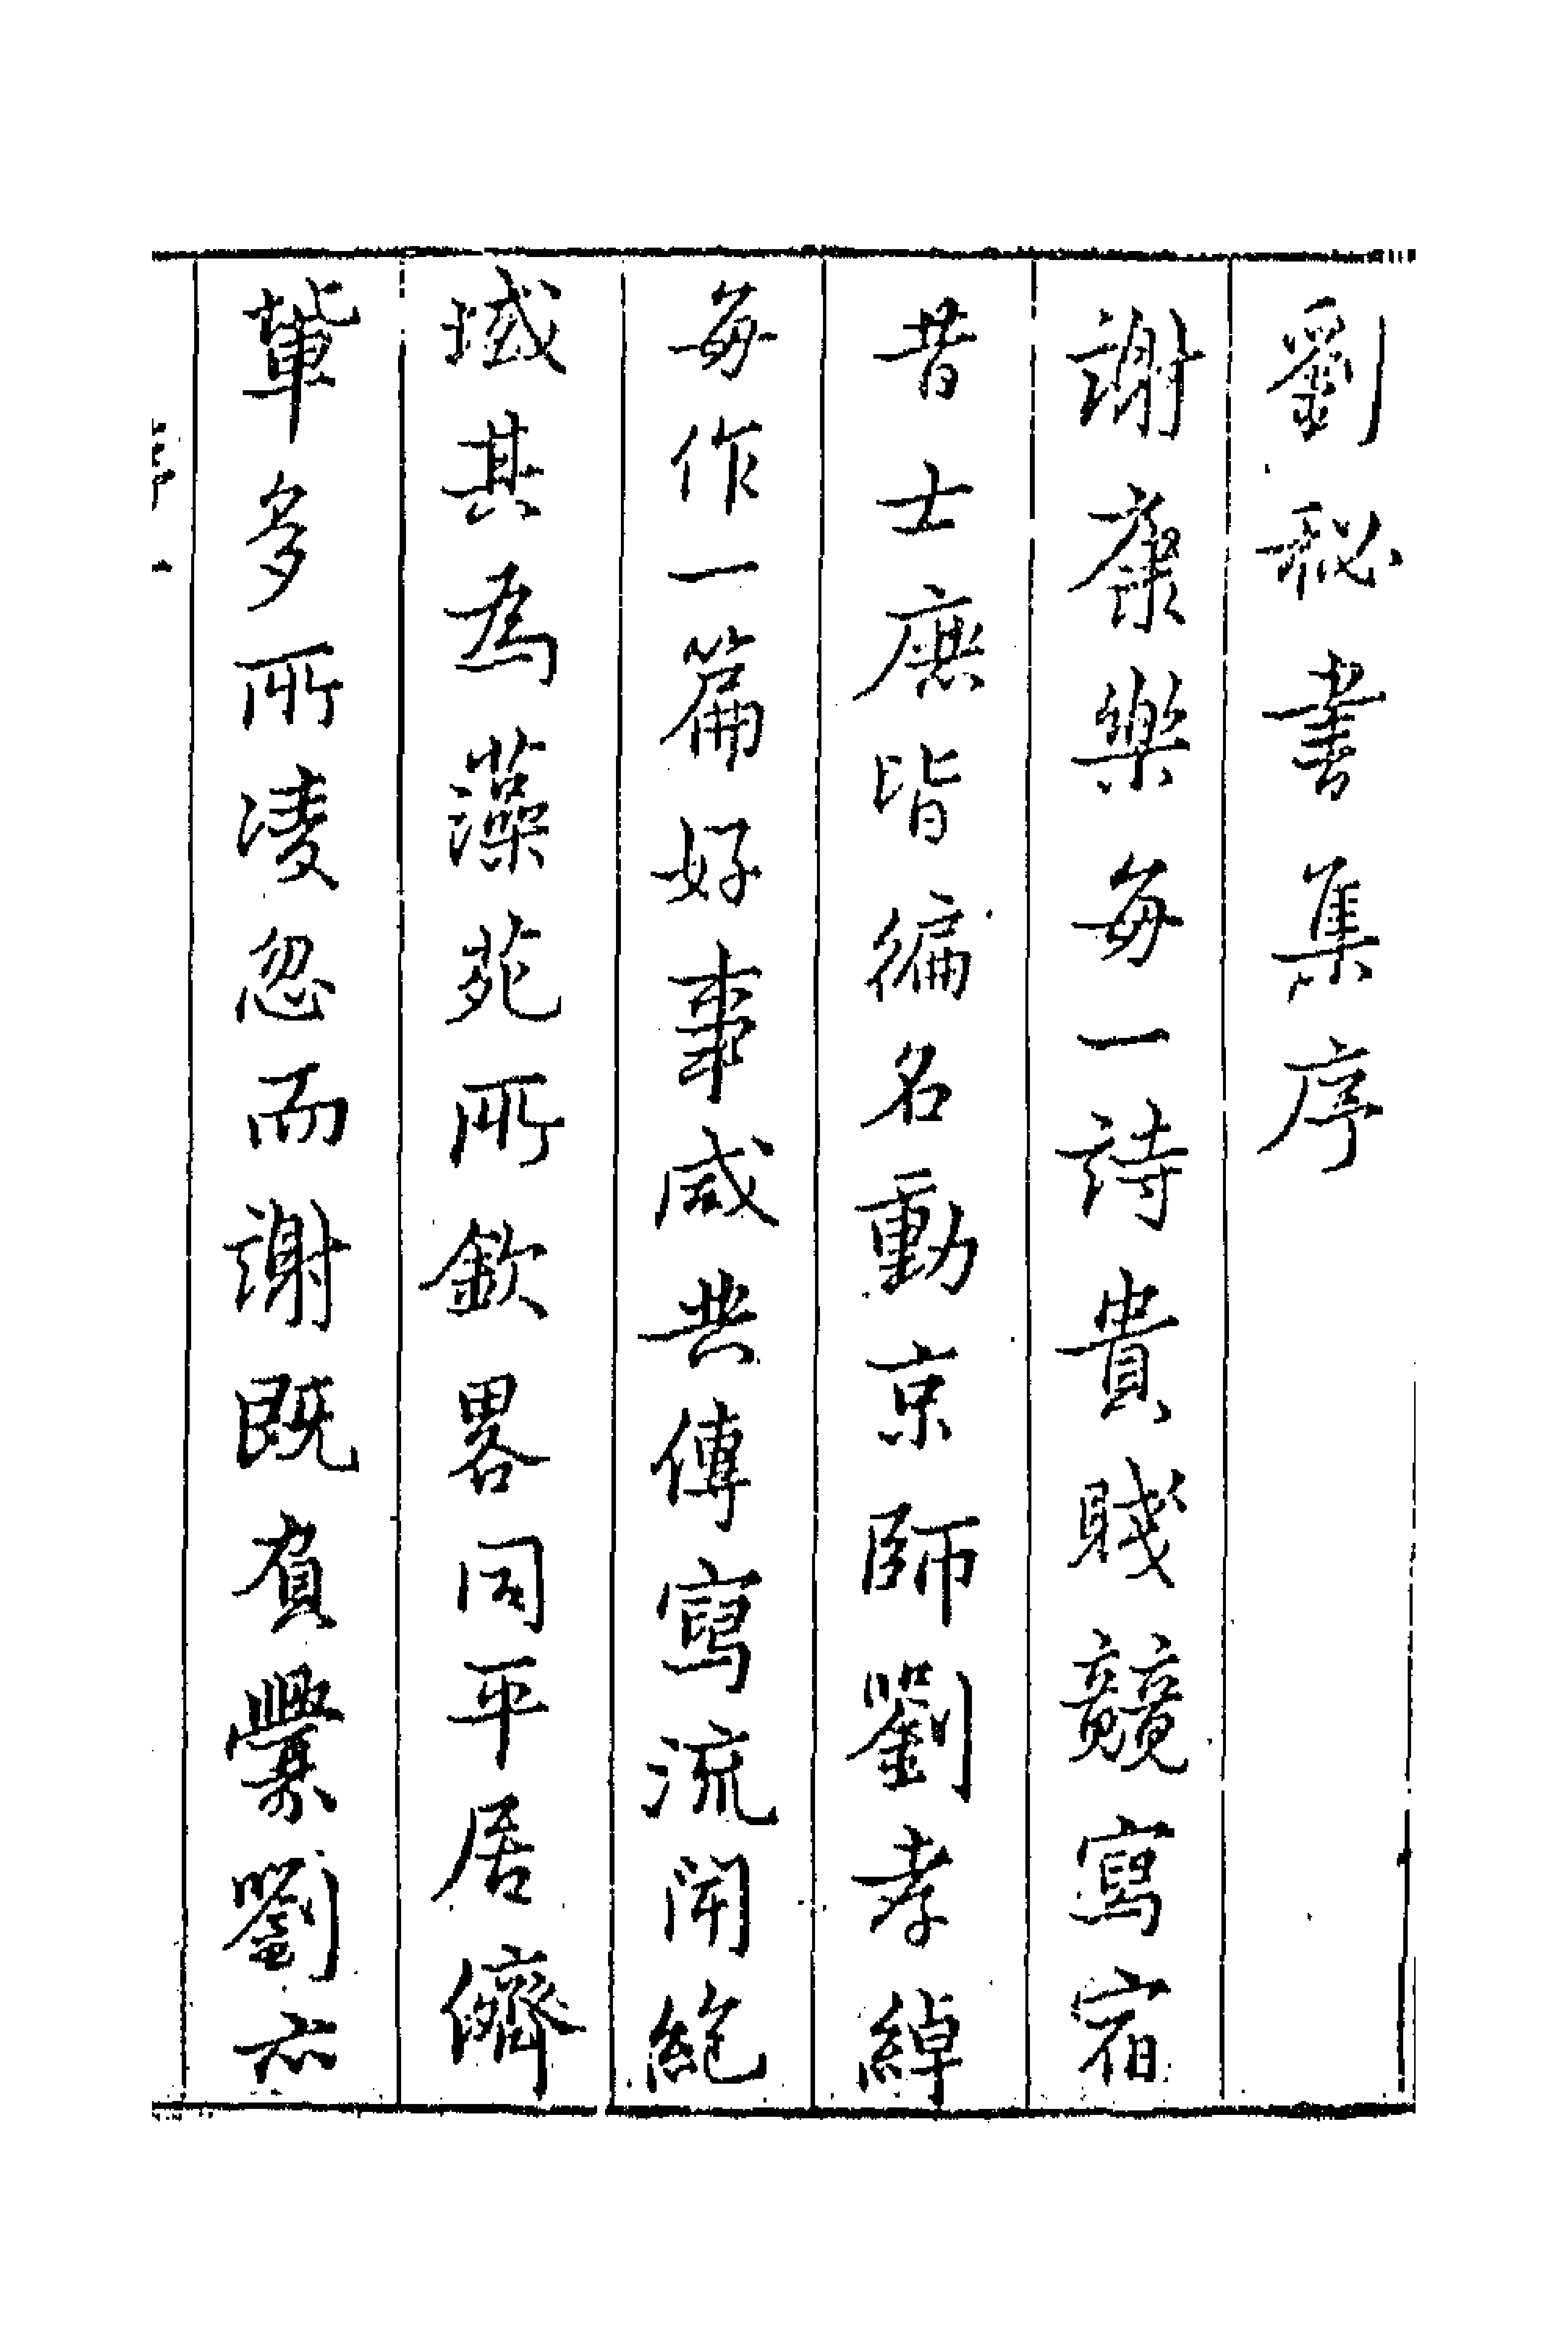 劉秘書集序
謝康樂每一詩貴賤競寫宿
昔士庶皆徧名動京師劉孝綽
每作一篇好事咸共傳寫流聞絕
域其為藻苑所欽畧同平居儕
輩多所凌忽而謝既負釁劉亦